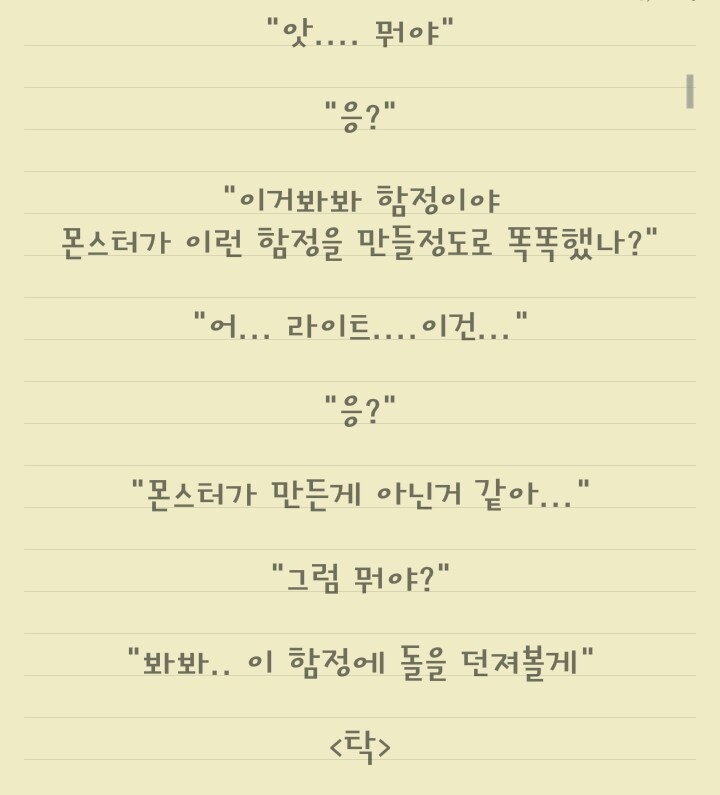 "앗.... 뭐야"
"응?"
"이거봐봐 함정이야
몬스터가 이런 함정을 만들정도로 똑똑했나?"
"어... 라이트....이건..."
"응?"
"몬스터가 만든게 아닌거 같아..."
"그럼 뭐야?"
"봐봐.. 이 함정에 돌을 던져볼게"
<탁>